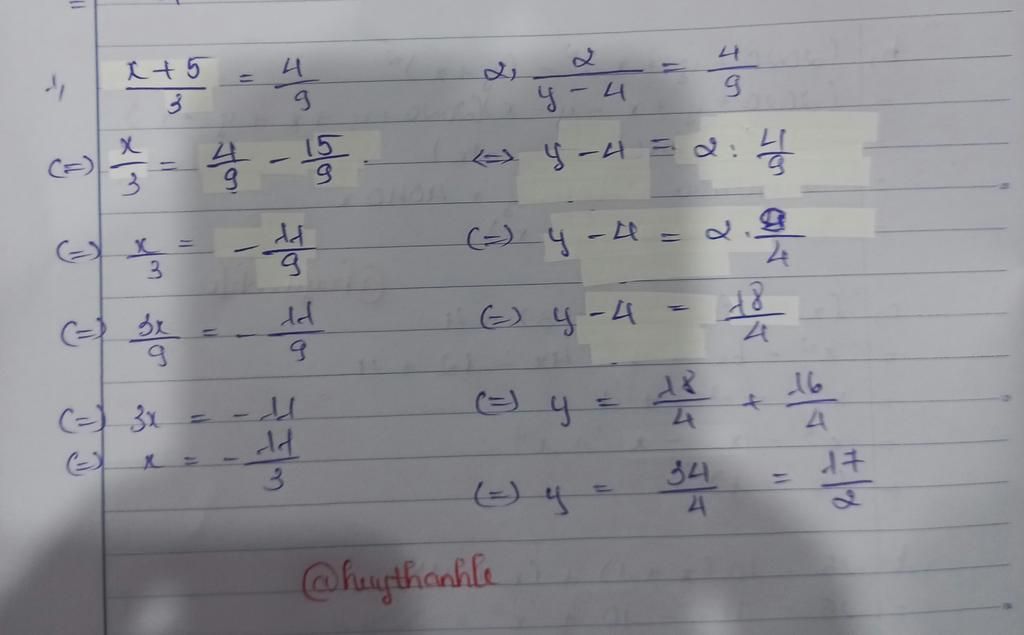 1, (x + 5)/3 = 4/9
(=) x/3 = 4/9 - 15/9
(=) x/3 = - 11/9
(=) 3x/9 = - 11/9
(=) 3x = - 11
(=) x = - 11/3
2, 2/(y - 4) = 4/9
<=> y - 4 = 2 : 4/9
(=) y - 4 = 2 . 9/4
(=) y - 4 = 18/4
(=) y = 18/4 + 16/4
(=) y = 34/4 = 17/2
@huythanhle